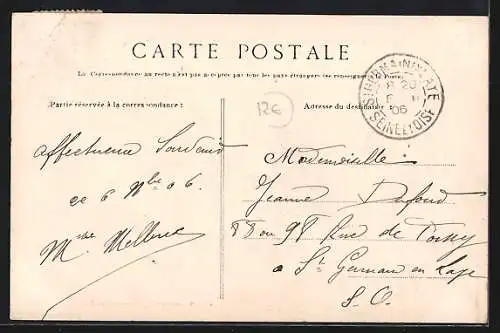 CARTE POSTALE
La Correspondance au recto n'est pas acceptée par tous les pays étrangers (se renseigner
Partie réservée à la correspondance :
Adresse du destinataire :
12€
St GERMAIN LAYE
8 20
6 11
06
SEINE ET OISE
affectueux Souvenir
ce 6 9bre 06.
Mme
Mademoiselle
Jeanne Dufour
ou 98 Rue de
a St Germain en Laye
S. O.